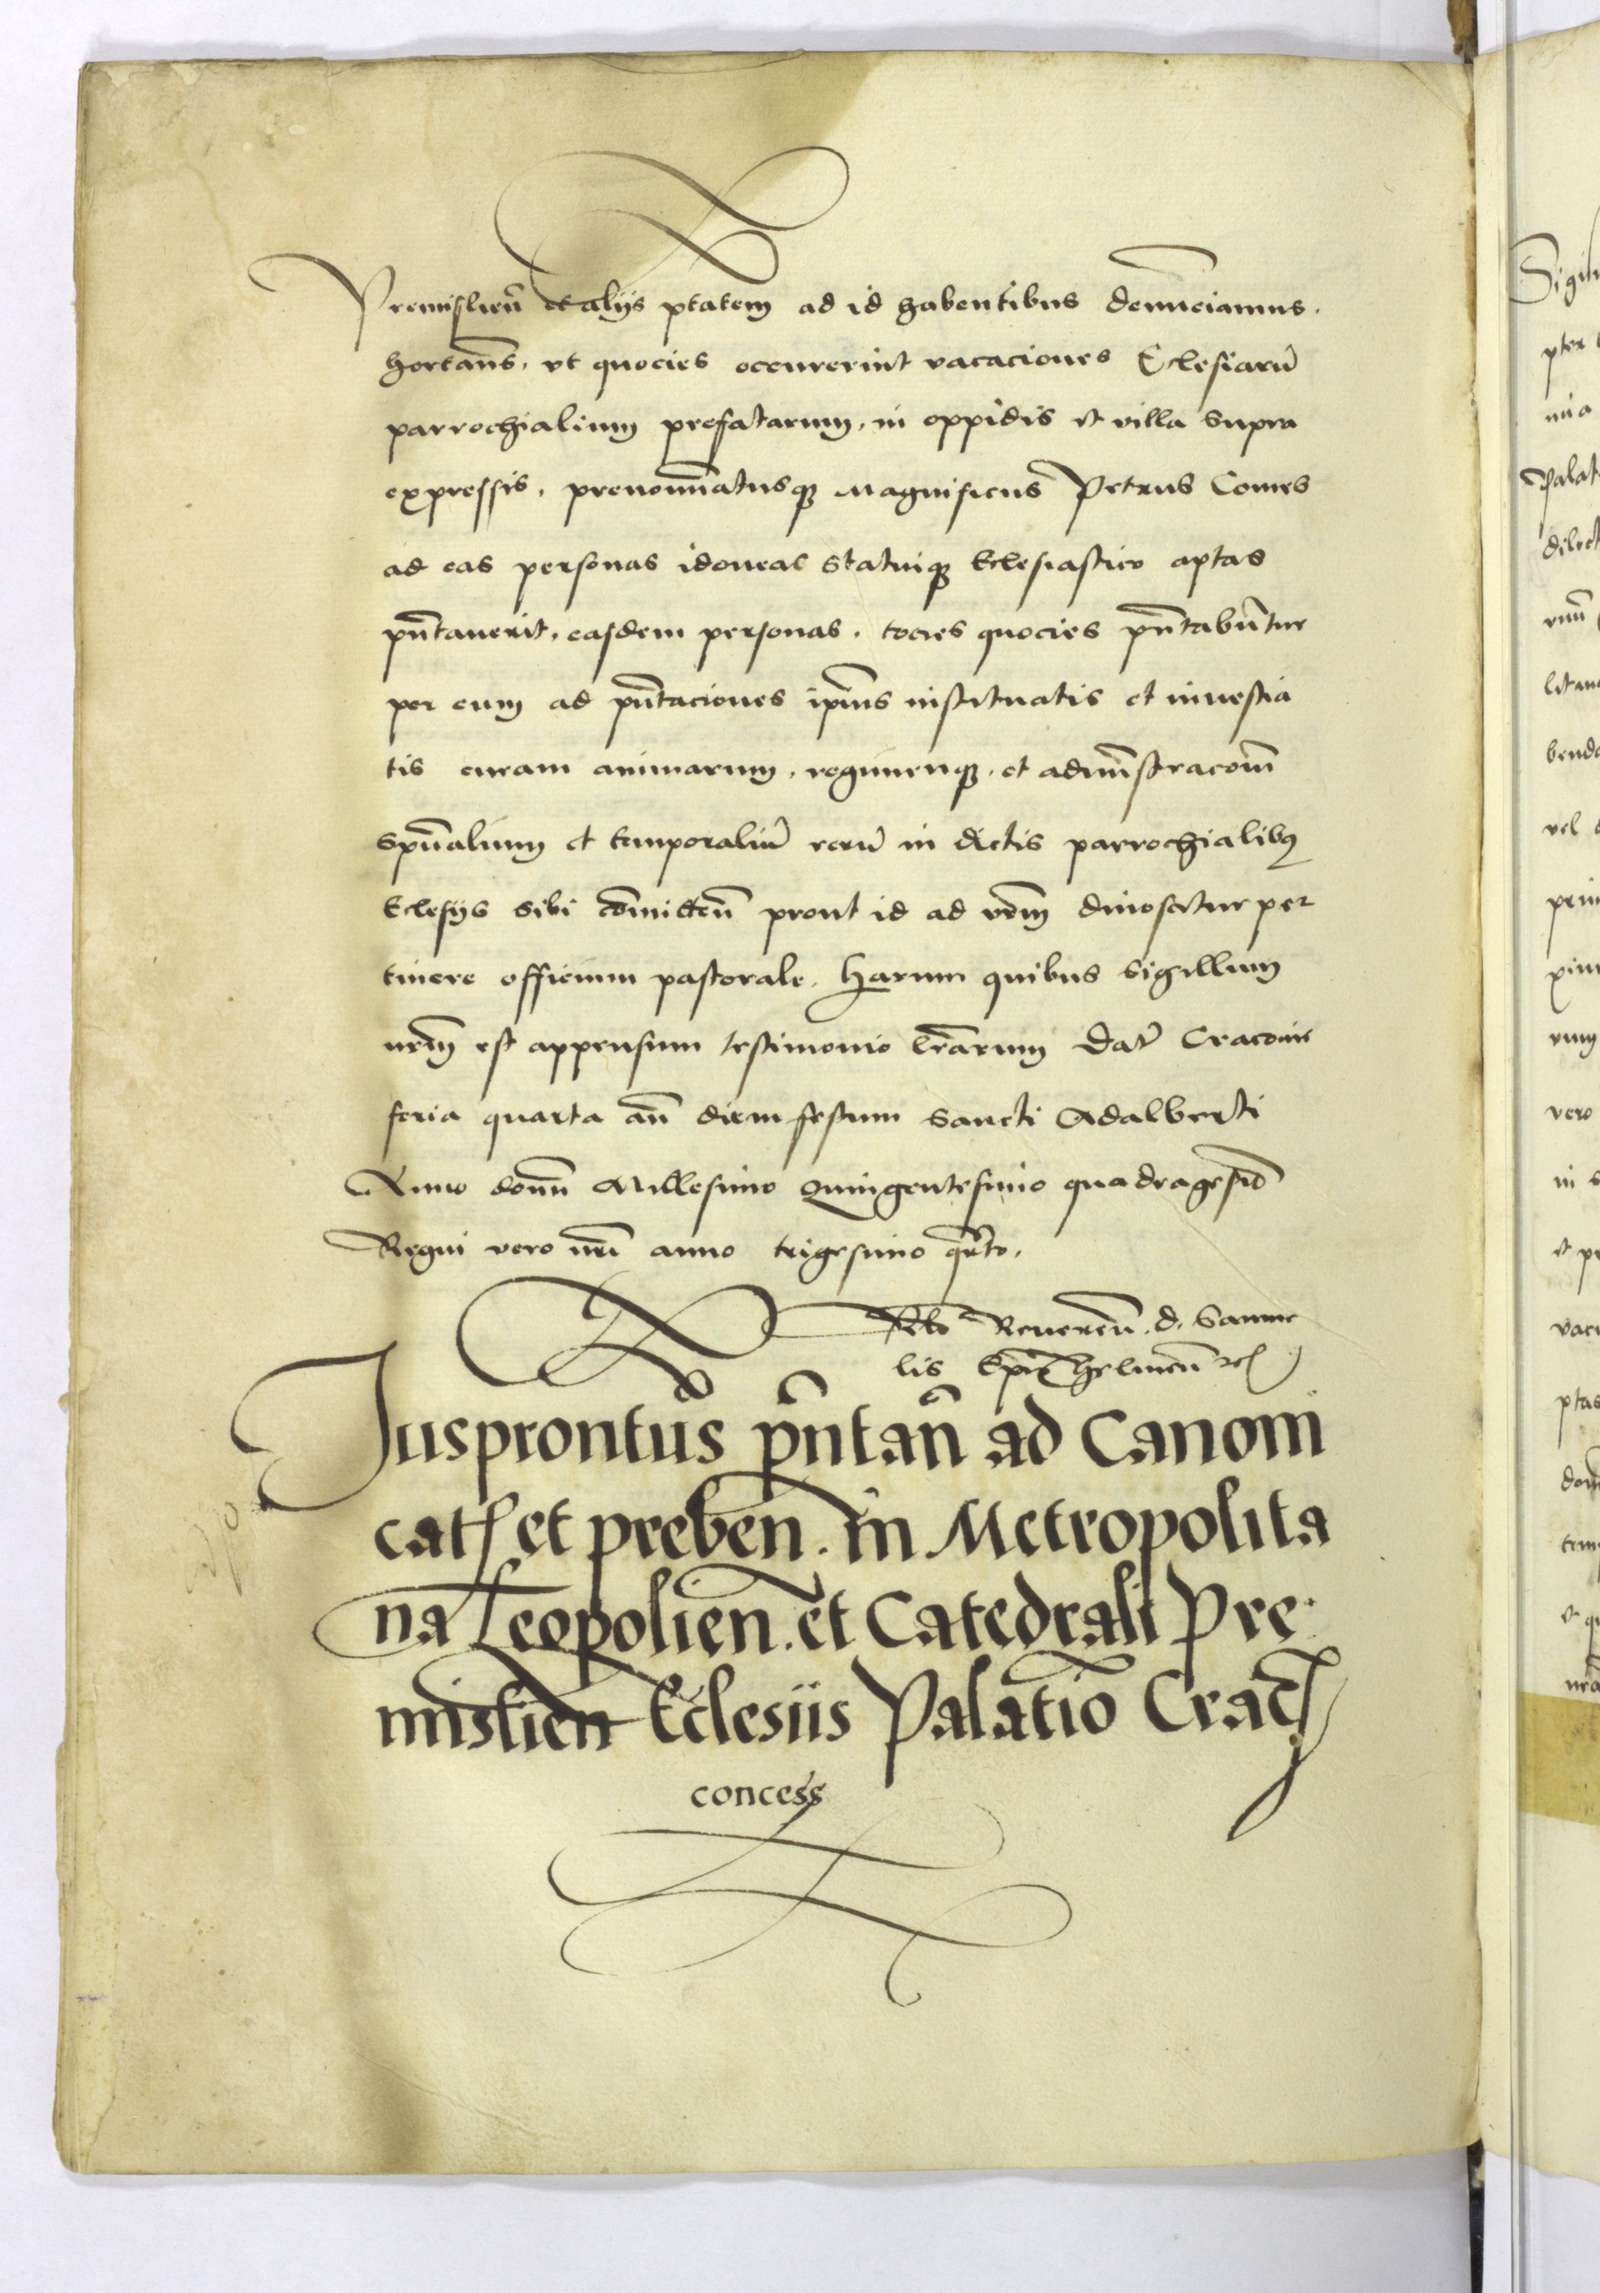 Premislien̄ et alijs ptatem ad id habentibus denunciamus.
hortan̄s, vt quocies occurrerint vacaciones Eclesiarū
parrochialium prefatarum, in oppidis et villa supra
expressis, prenom̄inatusq3 magnificus Petrus Comes
ad eas personas idoneas statuiq3 Eclesiastico aptas
pn̄tauerit, easdem personas, tocies quocies pn̄tabun̄tur
per eum ad pn̄taciones ipīus instituatis et inuestia
tis curam animarum, regimenq3, et admīstracōm̄
spūalium et temporaliū rerū in dictis parrochialibus
Eclesijs sibi com̄itten̄ prout id ad vr̄m dinoscitur per
tinere officium pastorale. Harum quibus sigillum
nr̄m est appensum testimonio lr̄arum Dat̄ Cracouie
feria quarta an̄ diem festum Sancti Adalberti
Anno domī Millesimo Quingentesimo quadragesiō
Regni vero nr̄i anno trigesimo qr̄to.
Rℓo Reueren̄. d. Samue
lis Ep̄i Chelmen̄ zc
Juspr̄ontūs pn̄tan̄ ad Canoni
cat et preben̄. in Metropolita
na Leopolien̄. et Catedrali Pre
mislien̄ Eclesiis Palatīo Crac̄
concess
Sigil
pter
Palat
dilect
litan
bend
vel
vero
in s
et p
vaca
ptas
dom
tem
et q